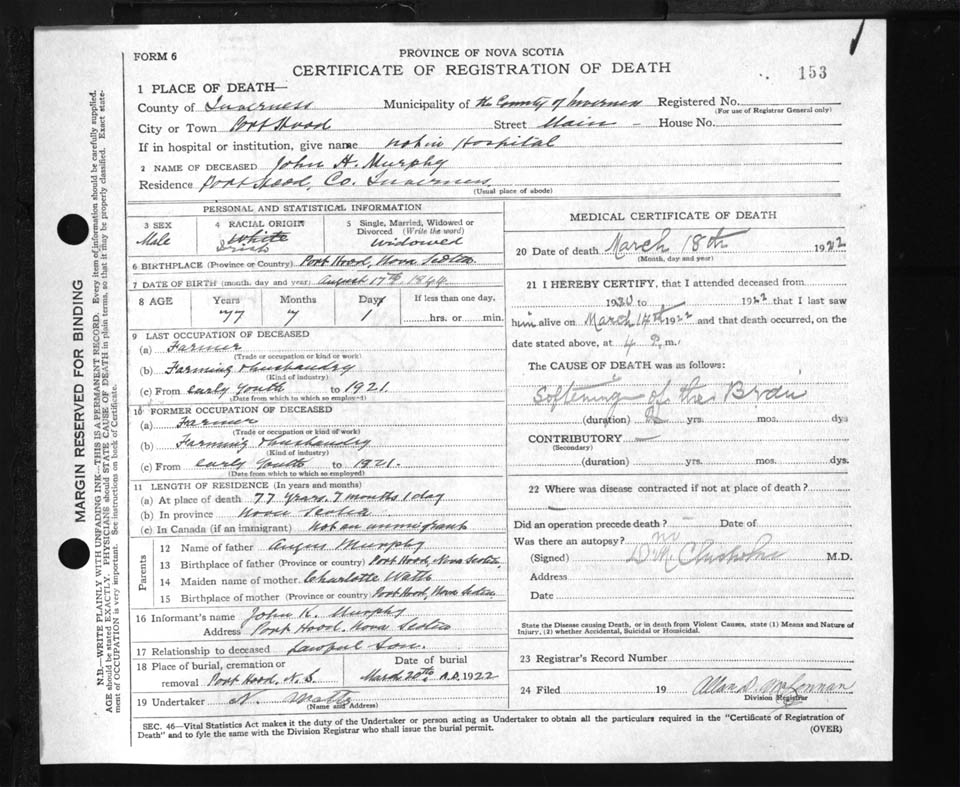 FORM 6
PROVINCE OF NOVA SCOTIA
CERTIFICATE OF REGISTRATION OF DEATH
153
1 PLACE OF DEATH—
County of Inverness Municipality of the County of Inverness Registered No.
(For use of Registrar General only)
City or Town Port Hood Street Main – House No.
If in hospital or institution, give name not in Hospital
2 NAME OF DECEASED John A. Murphy
Residence Port Hood, Co. Inverness
(Usual place of abode)
PERSONAL AND STATISTICAL INFORMATION
3 SEX
Male
4 RACIAL ORIGIN
White
Irish
5 Single, Married, Widowed or Divorced (Write the word)
Widowed
6 BIRTHPLACE (Province or Country) Port Hood, Nova Scotia
7 DATE OF BIRTH (month, day and year) August 17th, 1844
8 AGE Years Months Days If less than one day,
77 7 1 hrs. or min.
9 LAST OCCUPATION OF DECEASED
(a) Farmer
(Trade or occupation or kind of work)
(b) Farming & husbandry
(Kind of industry)
(c) From early youth to 1921.
(Date from which to which so employed)
10 FORMER OCCUPATION OF DECEASED
(a) Farmer
(Trade or occupation or kind of work)
(b) Farming & husbandry
(Kind of industry)
(c) From early youth to 1921.
(Date from which to which so employed)
11 LENGTH OF RESIDENCE (In years and months)
(a) At place of death 77 years, 7 months 1 day
(b) In province Nova Scotia
(c) In Canada (if an immigrant) Not an immigrant
Parents
12 Name of father Angus Murphy
13 Birthplace of father (Province or country) Port Hood, Nova Scotia
14 Maiden name of mother Charlotte Watts
15 Birthplace of mother (Province or country) Port Hood, Nova Scotia
16 Informant's name John K. Murphy
Address Port Hood, Nova Scotia
17 Relationship to deceased Lawful Son.
18 Place of burial, cremation or removal Port Hood, N.S.
Date of burial
March 20th, A.D. 1922
19 Undertaker N. Watts
(Name and Address)
MEDICAL CERTIFICATE OF DEATH
20 Date of death March 18th 1922
(Month, day and year)
21 I HEREBY CERTIFY, that I attended deceased from
1920 to 1922 that I last saw
him alive on March 14th 1922 and that death occurred, on the
date stated above, at 4 P.m.
The CAUSE OF DEATH was as follows:
Softening of the Brain
(duration) 2 yrs. mos. dys
CONTRIBUTORY —
(Secondary)
(duration) yrs. mos. dys.
22 Where was disease contracted if not at place of death?
Did an operation precede death? Date of
Was there an autopsy? no
(Signed) Chisholm M.D.
Address
Date
State the Disease causing Death, or in death from Violent Causes, state (1) Means and Nature of
Injury, (2) whether Accidental, Suicidal or Homicidal.
23 Registrar's Record Number
24 Filed 19 Allan D. McLennan
Division Registrar
SEC. 46—Vital Statistics Act makes it the duty of the Undertaker or person acting as Undertaker to obtain all the particulars required in the "Certificate of Registration of
Death" and to fyle the same with the Division Registrar who shall issue the burial permit.
(OVER)
MARGIN RESERVED FOR BINDING
N.B.—WRITE PLAINLY WITH UNFADING INK—THIS IS A PERMANENT RECORD. Every item of information should be carefully supplied.
AGE should be stated EXACTLY. PHYSICIANS should STATE CAUSE OF DEATH in plain terms, so that it may be properly classified. Exact state-
ment of OCCUPATION is very important. See instructions on back of Certificate.